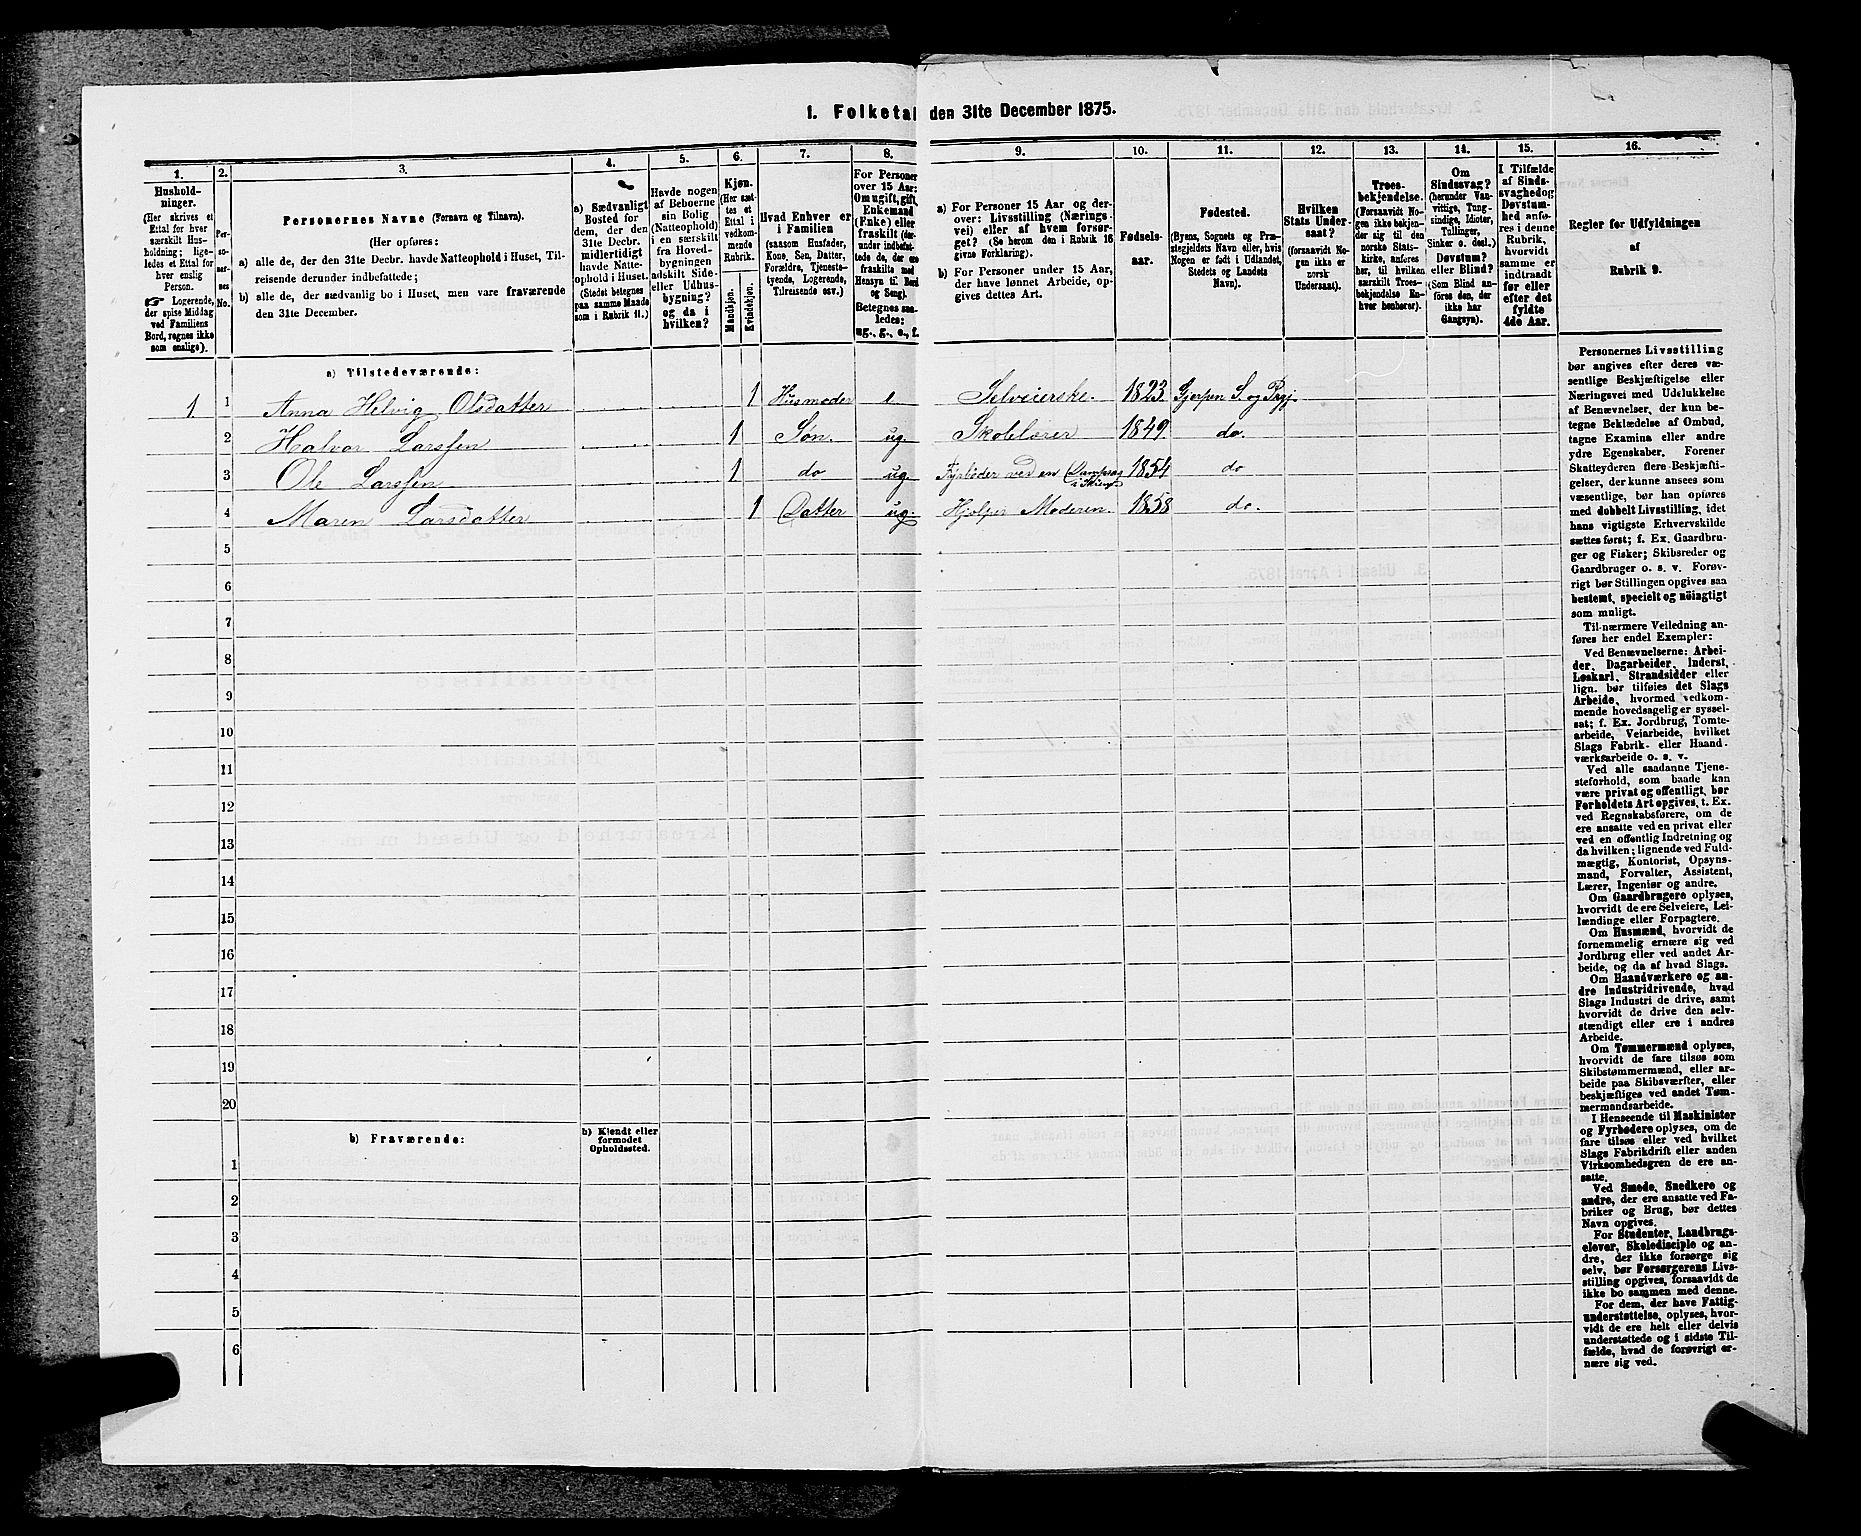 1. Folketal den 31te December 1875.
1. 2. 3. 4. 5. 6. 7. 8. 9. 10. 11. 12. 13. 14. 15. 16.
Hushold-
ninger.
(Her skrives et
Ettal for hver
særskilt Hus-
holdning; lige-
ledes et Ettal for
hver enslig
Person.
☞ Logerende,
der spise Middag
ved Familiens
Bord, regnes ikke
som enslige).
Per-
so-
ner-
nes
No.
Personernes Navne (Fornavn og Tilnavn).
(Her opføres:
a) alle de, der den 31te Decbr. havde Natteophold i Huset, Til-
reisende derunder indbefattede;
b) alle de, der sædvanlig bo i Huset, men vare fraværende
den 31te December.
a) Sædvanligt
Bosted for
dem, der den
31te Decbr.
midlertidigt
havde Natte-
ophold i Huset.
(Stedet betegnes
paa samme Maade
som i Rubrik 11.)
Havde nogen
af Beboerne
sin Bolig
(Natteophold)
i en særskilt
fra Hoved-
bygningen
adskilt Side-
eller Udhus-
bygning?
og da i
hvilken?
Kjøn.
(Her sæt-
tes et
Ettal i
vedkom-
mende
Rubrik.
Mandkjøn.
Kvindekjøn.
Hvad Enhver er
i Familien
(saasom Husfader,
Kone, Søn, Datter,
Forældre, Tjeneste-
tyende, Logerende,
Tilreisende osv.)
For Personer
over 15 Aar:
Om ugift, gift,
Enkemand
(Enke) eller
fraskilt (der-
under indbefat-
tede de, der ere
fraskilte med
Hensyn til Bord
og Seng).
Betegnes saa-
ledes:
ug., g., e., f.
a) For Personer 15 Aar og der-
over: Livsstilling (Nærings-
vei) eller af hvem forsør-
get? (Se herom den i Rubrik 16
givne Forklaring).
b) For Personer under 15 Aar,
der have lønnet Arbeide, op-
gives dettes Art.
Fødsels-
aar.
Fødested.
(Byens, Sognets og Præ-
stegjeldets Navn eller, hvis
Nogen er født i Udlandet,
Stedets og Landets
Navn).
Hvilken
Stats Under-
saat?
(forsaavidt No-
gen ikke er
norsk
Undersaat).
Troes-
bekjendelse.
(Forsaavidt No-
gen ikke bekjen-
der sig til den
norske Stats-
kirke, anføres
her, til hvilken
særskilt Troes-
bekjendelse En-
hver henhører).
Om
Sindssvag?
(herunder Van-
vittige, Tung-
sindige, Idioter,
Tullinger,
Sinker o. desl.)
Døvstum?
eller Blind?
(Som Blind an-
føres den, der
ikke har
Gangsyn).
I Tilfælde
af Sinds-
svaghed og
Døvstum-
hed anfø-
res i denne
Rubrik,
hvorvidt
samme er
indtraadt
før eller
efter det
fyldte
4de Aar.
Regler for Udfyldningen
af
Rubrik 9.
a) Tilstedeværende:
1. 1 Anna Helvig Olsdatter 1 Husmoder e Selveierske. 1823 Gjerpen S. og Prgj.
2 Halvor Larssen 1 Søn. ug. Skolelærer 1849 do.
3 Ole Larssen 1 do ug. Fyrbøder ved en Dampsag 1854 do
i Skien
4 Maren Larsdatter 1 Datter ug. Hjelper Moderen. 1858 do.
5
6
7
8
9
10
11
12
13
14
15
16
17
18
19
20
b) Fraværende:
b) Kjendt eller
formodet
Opholdssted.
1
2
3
4
5
6
Personernes Livsstilling
bør angives efter deres væ-
sentlige Beskjæftigelse eller
Næringsvei med Udelukkelse
af Benævnelser, der kun be-
tegne Beklædelse af Ombud,
tagne Examina eller andre
ydre Egenskaber. Forener
Skatteyderen flere Beskjæfti-
gelser, der kunne ansees som
væsentlige, bør han opføres
med dobbelt Livsstilling, idet
hans vigtigste Erhvervskilde
sættes først; f. Ex. Gaardbru-
ger og Fisker; Skibsreder og
Gaardbruger o. s. v. Forøv-
rigt bør Stillingen opgives saa
bestemt, specielt og nøiagtigt
som muligt.
Til nærmere Veiledning an-
føres her endel Exempler:
Ved Benævnelserne: Arbei-
der, Dagarbeider, Inderst,
Løskarl, Strandsidder eller
lign. bør tilføies det Slags
Arbeide, hvormed vedkom-
mende hovedsagelig er syssel-
sat; f. Ex. Jordbrug, Tomte-
arbeide, Veiarbeide, hvilket
Slags Fabrik- eller Haand-
værksarbeide o. s. v.
Ved alle saadanne Tjene-
steforhold, som baade kan
være privat og offentligt, bør
Forholdets Art opgives, t. Ex.
ved Regnskabsførere, om de
ere ansatte ved en privat eller
ved en offentlig Indretning og
da hvilken; lignende ved Fuld-
mægtig, Kontorist, Opsyns-
mand, Forvalter, Assistent,
Lærer, Ingeniør og andre.
Om Gaardbrugere oplyses,
hvorvidt de ere Selveiere, Lei-
lændinge eller Forpagtere.
Om Husmænd, hvorvidt de
fornemmelig ernære sig ved
Jordbrug eller ved andet Ar-
beide, og da af hvad Slags.
Om Haandværkere og an-
dre Industridrivende, hvad
Slags Industri de drive, samt
hvorvidt de drive den selv-
stændigt eller ere i andres
Arbeide.
Om Tømmermænd oplyses,
hvorvidt de fare tilsøs som
Skibstømmermænd, eller ar-
beide paa Skibsværfter, eller
beskjæftiges ved andet Tøm-
mermandsarbeide.
I Henseende til Maskinister
og Fyrbødere oplyses, om de
fare tilsøs eller ved hvilket
Slags Fabrikdrift eller anden
Virksomhedsgren de ere an-
satte.
Ved Smede, Snedkere og
andre, der ere ansatte ved Fa-
briker og Brug, bør dettes
Navn opgives.
For Studenter, Landbrugs-
elever, Skoledisciple og an-
dre, der ikke forsørge sig
selv, bør Forsørgerens Livs-
stilling opgives, forsaavidt de
ikke bo sammen med denne.
For dem, der have Fattig-
understøttelse, oplyses, hvor-
vidt de ere helt eller delvis
understøttede og i sidste Til-
fælde, hvad de forøvrigt er-
nære sig ved.